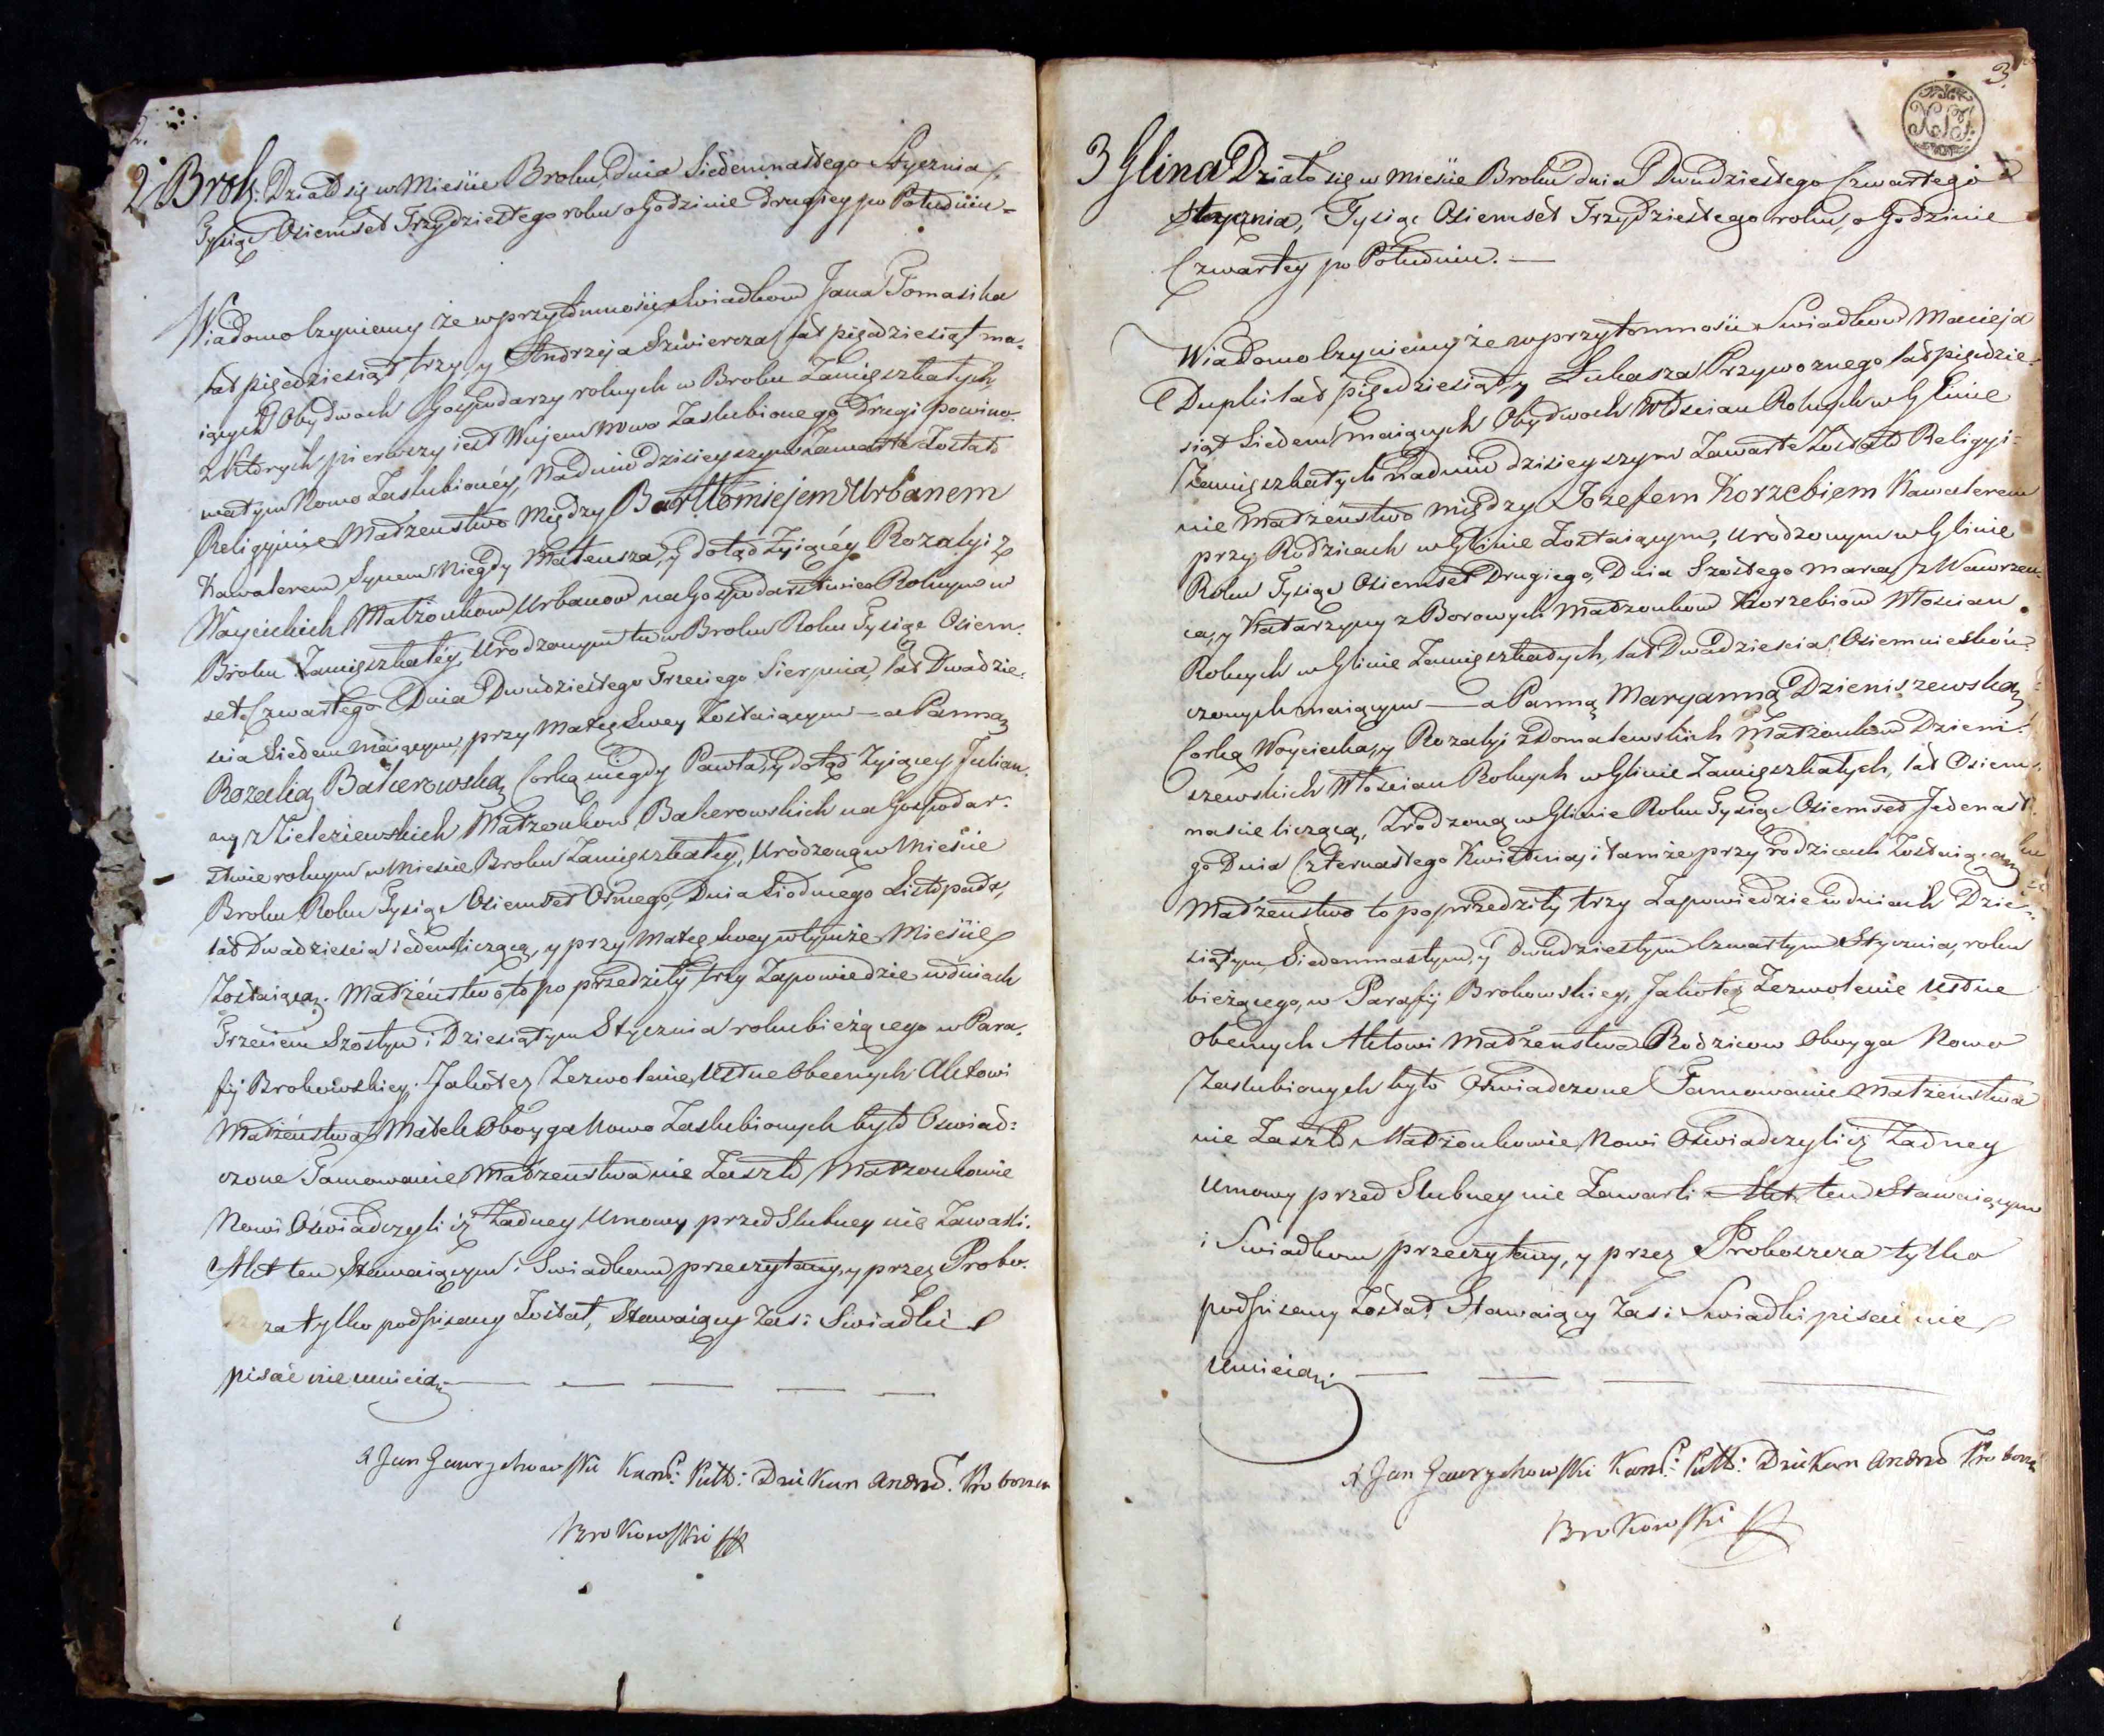 2.
2 Brok. Działo się w Mieście Broku, Dnia Siedemnastego Stycznia
Tysiąc Osiemset Trzydziestego roku o Godzinie drugiey po Południu =
Wiadomo Czyniemy że w przytomności Swiadków Jana Tomasika
lat pięćdziesiąt trzy, y Andrzeja Szwiercza lat pięćdziesiąt ma-
iących Obydwoch Gospodarzy rolnych w Broku Zamięszkałych
z których pierwszy iest Wujem Nowo Zaslubionego Drugi powino-
watym Nowo Zaslubionéy, Na dniu dzisieyszym Zawarte Zostało
Religyinie Małżeństwo Między Bartłomiejem Urbanem
Kawalerem Synem Niegdy Mateusza, y dotąd Żyiącéy Rozalyi z
Woycickich Małżonków Urbanow na Gospodarstwie Rolnym w
Broku Zamięszkałéy, Urodzonym tu w Broku Roku Tysiąc Osiem-
set Czwartego Dnia Dwudziestego Trzeciego Sierpnia, lat Dwadzie-
scia Siedem maiącym, przy Matce Swey Zostaiącym — a Panną
Rozalią Bakerowską Corką niegdy Pawła, y dotąd Żyiącey Julian-
ny z Zieleziewskich Małżonkow Bakerowskich na Gospodar-
stwie rolnym w Miescie Broku Zamięszkałey, Urodzoną w Mieście
Broku Roku Tysiąc Osiemset Osmego, Dnia Siodmego Listopada,
lat Dwadziescia ieden liczącą, y przy Matce Swey w tymże Mieście
Zostaiącą. Małżeństwo to poprzedziły trzy Zapowiedzie w dniach
Trzecim Szostym i Dziesiątym Stycznia roku bieżącego w Para-
fij Brokowskiey. Jakotez Zezwolenie Ustne Obecnych Aktowi
Małżeństwa Matek Oboyga Nowo Zaslubionych było Oswiad-
czone Tamowanie Małżenstwa nie Zaszło Małżonkowie
Nowi Oświadczyli iż Żadney Umowy przed Slubney nie Zawarli.
Akt ten Stawaiącym i Swiadkom przeczytany, y przez Probo-
szcza tylko podpisany Został, Stawaiący Zas i Swiadki
pisać nie umieią. — — — — —
X Jan Gawrychowski Kan: Pułt: Dziekan Andrz. Proboszcz
Brokowski

3
3 Glina Działo się w Mieście Broku dnia Dwudziestego Czwartego
Stycznia, Tysiąc Osiemset Trzydziestego roku, o Godzinie
Czwartey po Południu. —
Wiadomo Czyniemy że w przytomności Swiadkow Macieja
Dupki lat pięćdziesiąt, y Łukasza Przywoznego lat pięćdzie-
siąt Siedem maiących Obydwoch Włoscian Rolnych w Glinie
Zamięszkałych Na dniu dzisieyszym Zawarte Zostało Religyi-
nie Małżeństwo między Jozefem Korzebiem Kawalerem
przy Rodzicach w Glinie Zostaiącym, Urodzonym w Glinie
Roku Tysiąc Osiemset Drugiego, Dnia Szostego Marca, z Wawrzen-
ca, y Katarzyny z Borowych Małżonkow Korzebiow Włoscian
Rolnych w Glinie Zamięszkałych, lat Dwadziescia Osiem nieskon-
czonych maiącym — a Panną Maryanną Dzieniszewską
Corką Woyciecha, y Rozalyi z Domalewskich Małżonkow Dzieni-
szewskich Włoscian Rolnych w Glinie Zamięszkałych, lat Osiem-
nascie liczącą, Zrodzoną w Glinie Roku Tysiąc Osiemset Jedenaste-
go Dnia Czternastego Kwietnia, i tamże przy rodzicach Zostaiącą
Małżenstwo to poprzedziły trzy Zapowiedzie w dniach Dzie-
siątym, Siedemnastym, y Dwudziestym Czwartym Stycznia, roku
bieżącego, w Parafij Brokowskiey, Jakotez Zezwolenie Ustne
Obecnych Aktowi Małżenstwa Rodzicow Oboyga Nowo
Zaslubionych było Oswiadczone Tamowanie Małżeństwa
nie Zaszło Małżonkowie Nowi Oświadczyli iż Żadney
Umowy przed Slubney nie Zawarli. Akt ten Stawaiącym
i Swiadkom przeczytany, y przez Proboszcza tylko
podpisany Został Stawaiący Zas i Swiadki pisać nie
Umieią. — — — —
X Jan Gawrychowski Kan: Pułt: Dziekan Andrz. Proboszcz
Brokowski